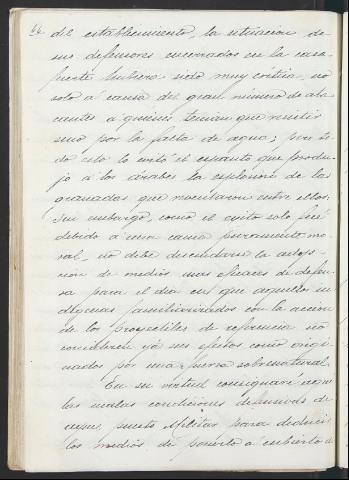 del establecimiento, la situacion de
sus defensores encerrados en la casa
fuerte hubiera sido muy critica, no
solo á causa del gran número de ata
cantes á quienes tenian que resistir
sino por la falta de agua; pero to
do esto lo evitó el espanto que produ-
jo á los árabes la esplosion de las
granadas que reventaron entre ellos.
Sin embargo, como el exito solo fué
debido á una causa puramente mo
ral, no debe descuidarse la adop-
cion de medios mas eficaces de defen
sa para el dia en que aquellos in
digenas familiarizados con la accion
de los proyectiles de referencia no
consideren ya sus efectos como origi
nados por una fuerza sobrenatural.
En su virtud consignaré aqui
las malas condiciones defensivas de
aquel puesto Militar para deducir
los medios de ponerlo á cubierto de